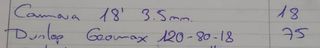 Camara 18' 3.5mm. 18
Dunlop Geomax 120-80-18 75